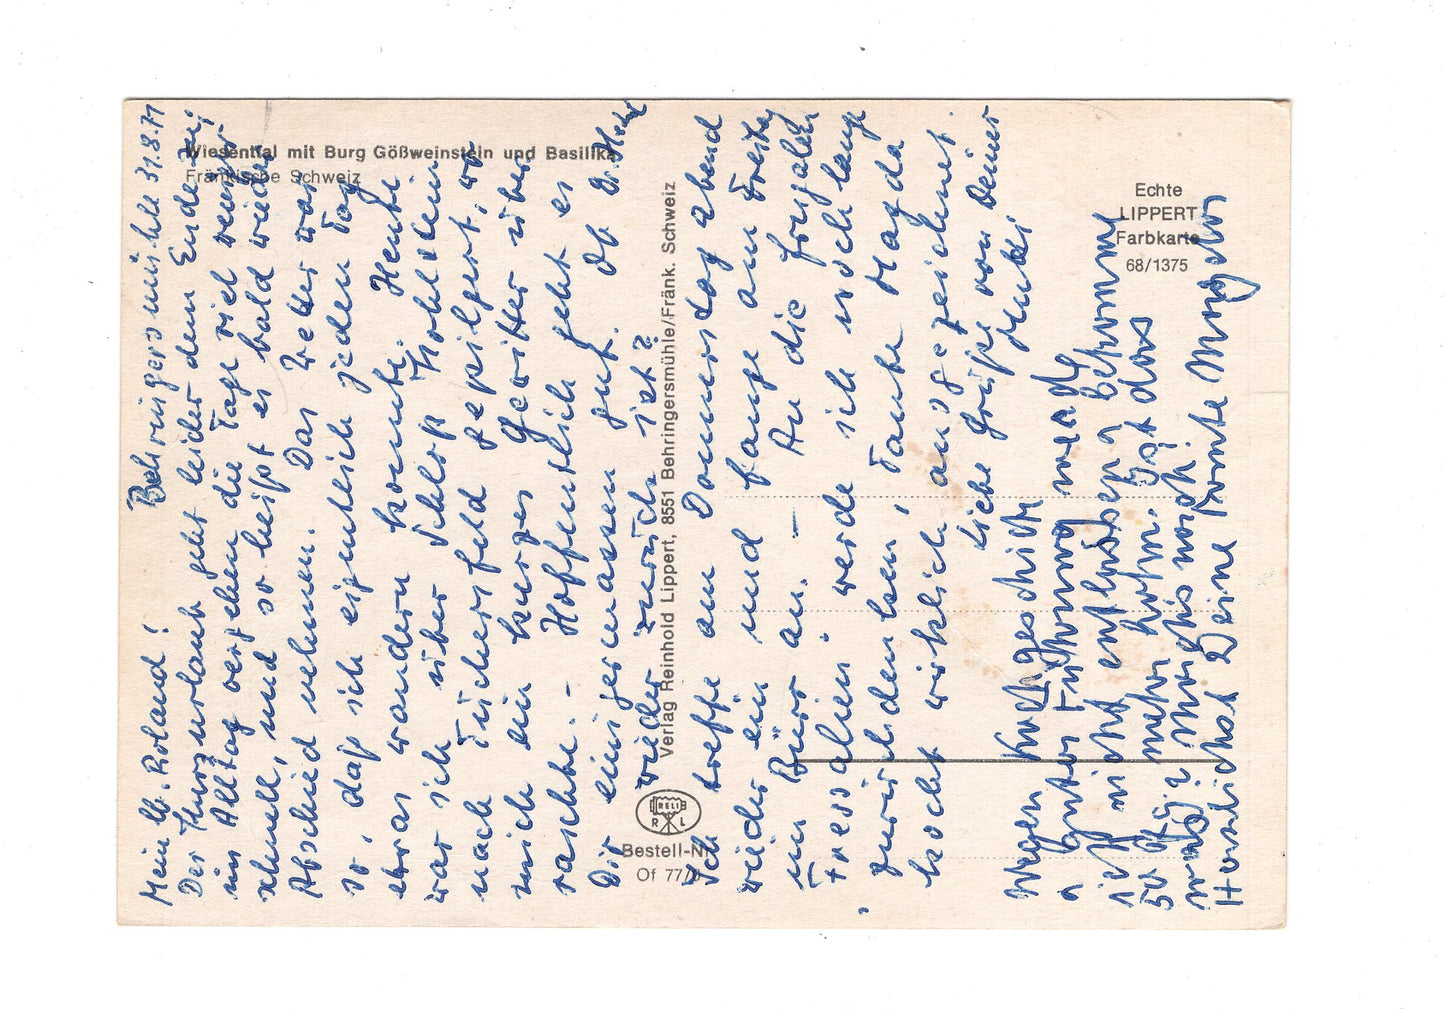 Wiesenttal mit Burg Gößweinstein und Basilika
Fränkische Schweiz
Echte
LIPPERT
Farbkarte
68/1375
Verlag Reinhold Lippert, 8551 Behringersmühle/Fränk. Schweiz
RELI
R L
Bestell-Nr.
Of 77/
Behringersmühle 31.8.71
Mein lb. Roland!
Der Kurzurlaub geht leider dem Ende zu,
im Alltag vergehen die Tage viel weniger
schnell, und so heißt es bald wieder
Abschied nehmen. Das Wetter war
so, daß ich eigentlich jeden Tag
etwas wandern konnte. Heute
war ich über Schloß
nach Tüchersfeld gepilgert, wo
mich ein kurzes Gewitter über
raschte. - Hoffentlich geht es
Dir einigermassen gut. Ob Dr.
wieder zurück ist?
Ich treffe am Donnerstag abend
wieder ein und fange am Freitag
im Büro an. - An die
werde ich noch lange
zurückdenken, Tante Magda
kocht wirklich ausgezeichnet.
Liebe Grüße von Deiner
Mutti
Wegen
guter Führung
ich nicht entlassen bekomme
50 kg mehr
noch
Herzlichst Deine Tante